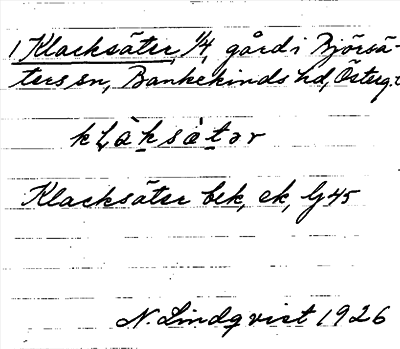 1 Klacksäter, 1/4, gård i Björsä-
ters sn, Bankekinds hd, Österg.
kḷàksàtər
Klacksäter bek, ek, Lj 45
N. Lindqvist 1926